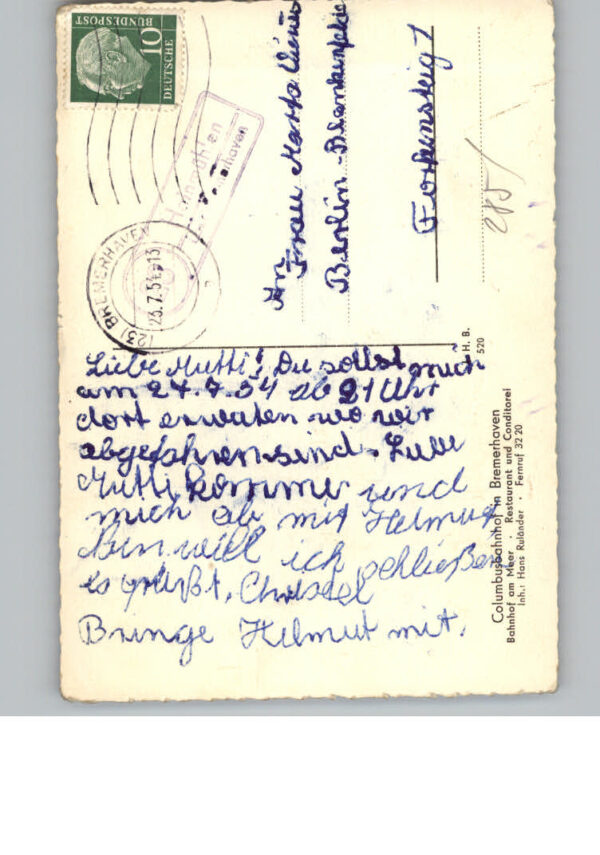 Liebe Mutti! Du sollst mich
am 27.7.54 ab 21 Uhr
dort erwaten wo wir
abgefahren sind. Liebe
Mutti komme und
mich ab mit Helmut
Nun will ich schließen
es grüßt, Christel
Bringe Helmut mit.
An
Frau Marta
Berlin-Blankenfelde
285
DEUTSCHE
BUNDESPOST
10
(23) BREMERHAVEN
23.7.54-13
Bremerhaven
H. B.
520
Columbusbahnhof in Bremerhaven
Bahnhof am Meer · Restaurant und Conditorei
Inh.: Hans Ruländer · Fernruf 32 20